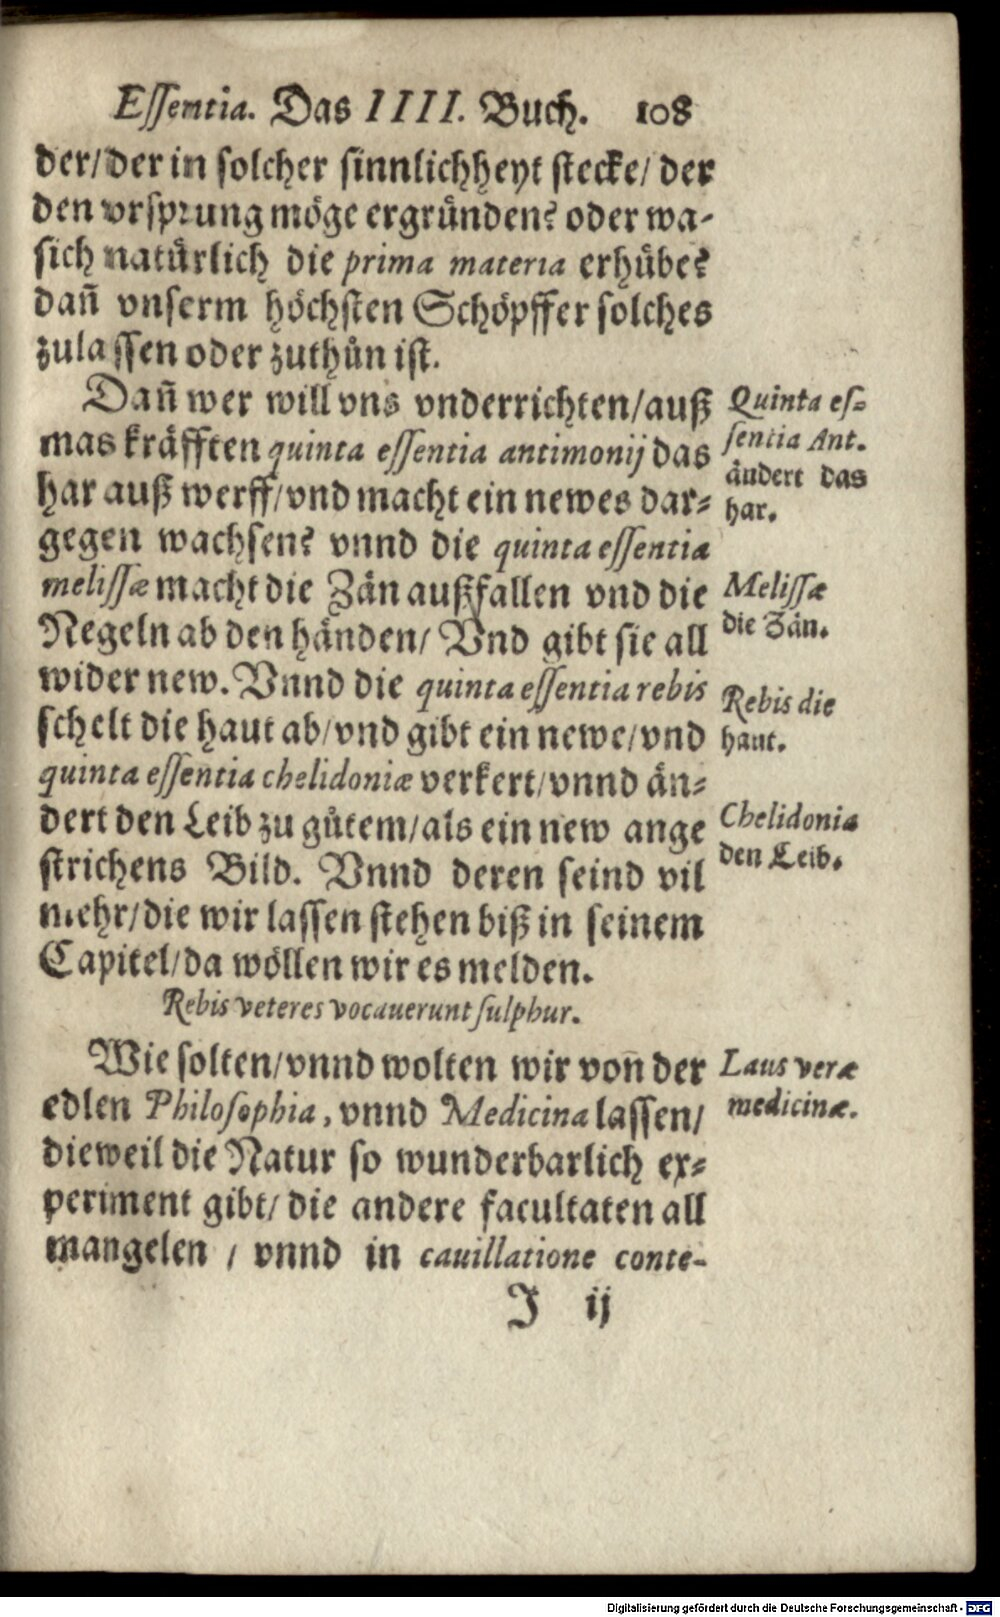 Essentia. Das IIII. Buch. 108
der/der in solcher sinnlichheyt stecke/ der
den vrsprung möge ergründen? oder wa-
sich natürlich die prima materia erhübe?
dañ vnserm höchsten Schöpffer solches
zulassen oder zuthůn ist.
Dañ wer will vns vnderrichten/auß
mas kräfften quinta essentia antimonij das
har auß werff/vnd macht ein newes dar-
gegen wachsen? vnnd die quinta essentia
melissæ macht die Zän außfallen vnd die
Negeln ab den händen/ Vnd gibt sie all
wider new. Vnnd die quinta essentia rebis
schelt die haut ab/vnd gibt ein newe/vnd
quinta essentia chelidoniæ verkert/vnnd än-
dert den Leib zu gůtem/als ein new ange
strichens Bild. Vnnd deren seind vil
mehr/die wir lassen stehen biß in seinem
Capitel/da wöllen wir es melden.
Rebis veteres vocauerunt sulphur.
Wie solten/vnnd wolten wir von̄ der
edlen Philosophia, vnnd Medicina lassen/
dieweil die Natur so wunderbarlich ex-
periment gibt/ die andere facultaten all
mangelen / vnnd in cauillatione conte-
J ij
Quinta es-
sentia Ant.
ändert das
har.
Melissæ
die Zän.
Rebis die
haut.
Chelidonia
den Leib.
Laus veræ
medicinæ.
Digitalisierung gefördert durch die Deutsche Forschungsgemeinschaft - DFG